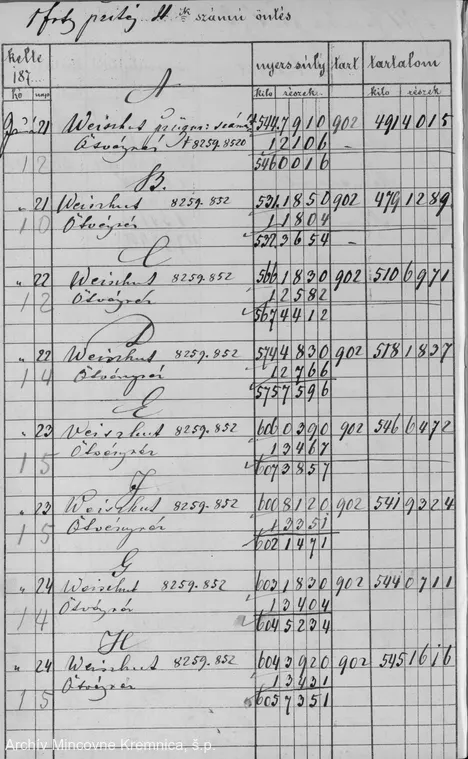 1 frtos 11 ik számú öntés
kelte nyers súly tart tartalom
187
hó nap kilo részek kilo részek
A
21 Weiszhut 544 7910 902 491 4015
Ötvényréz 8259.8520 1 2106
12 546 0016 –
B.
„ 21 Weiszhut 8259.852 531 1850 902 479 1289
10 Ötvényréz 1 1804
532 3654 –
C
„ 22 Weiszhut 8259.852 566 1830 902 510 6971
12 Ötvényréz 1 2582
567 4412
D
„ 22 Weiszhut 8259.852 574 4830 902 518 1837
14 Ötvényréz 1 2766
575 7596
E
„ 23 Weiszhut 8259.852 606 0390 902 546 6472
15 Ötvényréz 1 3467
607 3857
F
„ 23 Weiszhut 8259.852 600 8120 902 541 9324
15 Ötvényréz 1 3351
602 1471
G
„ 24 Weiszhut 8259.852 603 1830 902 544 0711
14 Ötvényréz 1 3404
604 5234
H
„ 24 Weiszhut 8259.852 604 3920 902 545 1616
15 Ötvényréz 1 3431
605 7351
Archív Mincovne Kremnica, š.p.